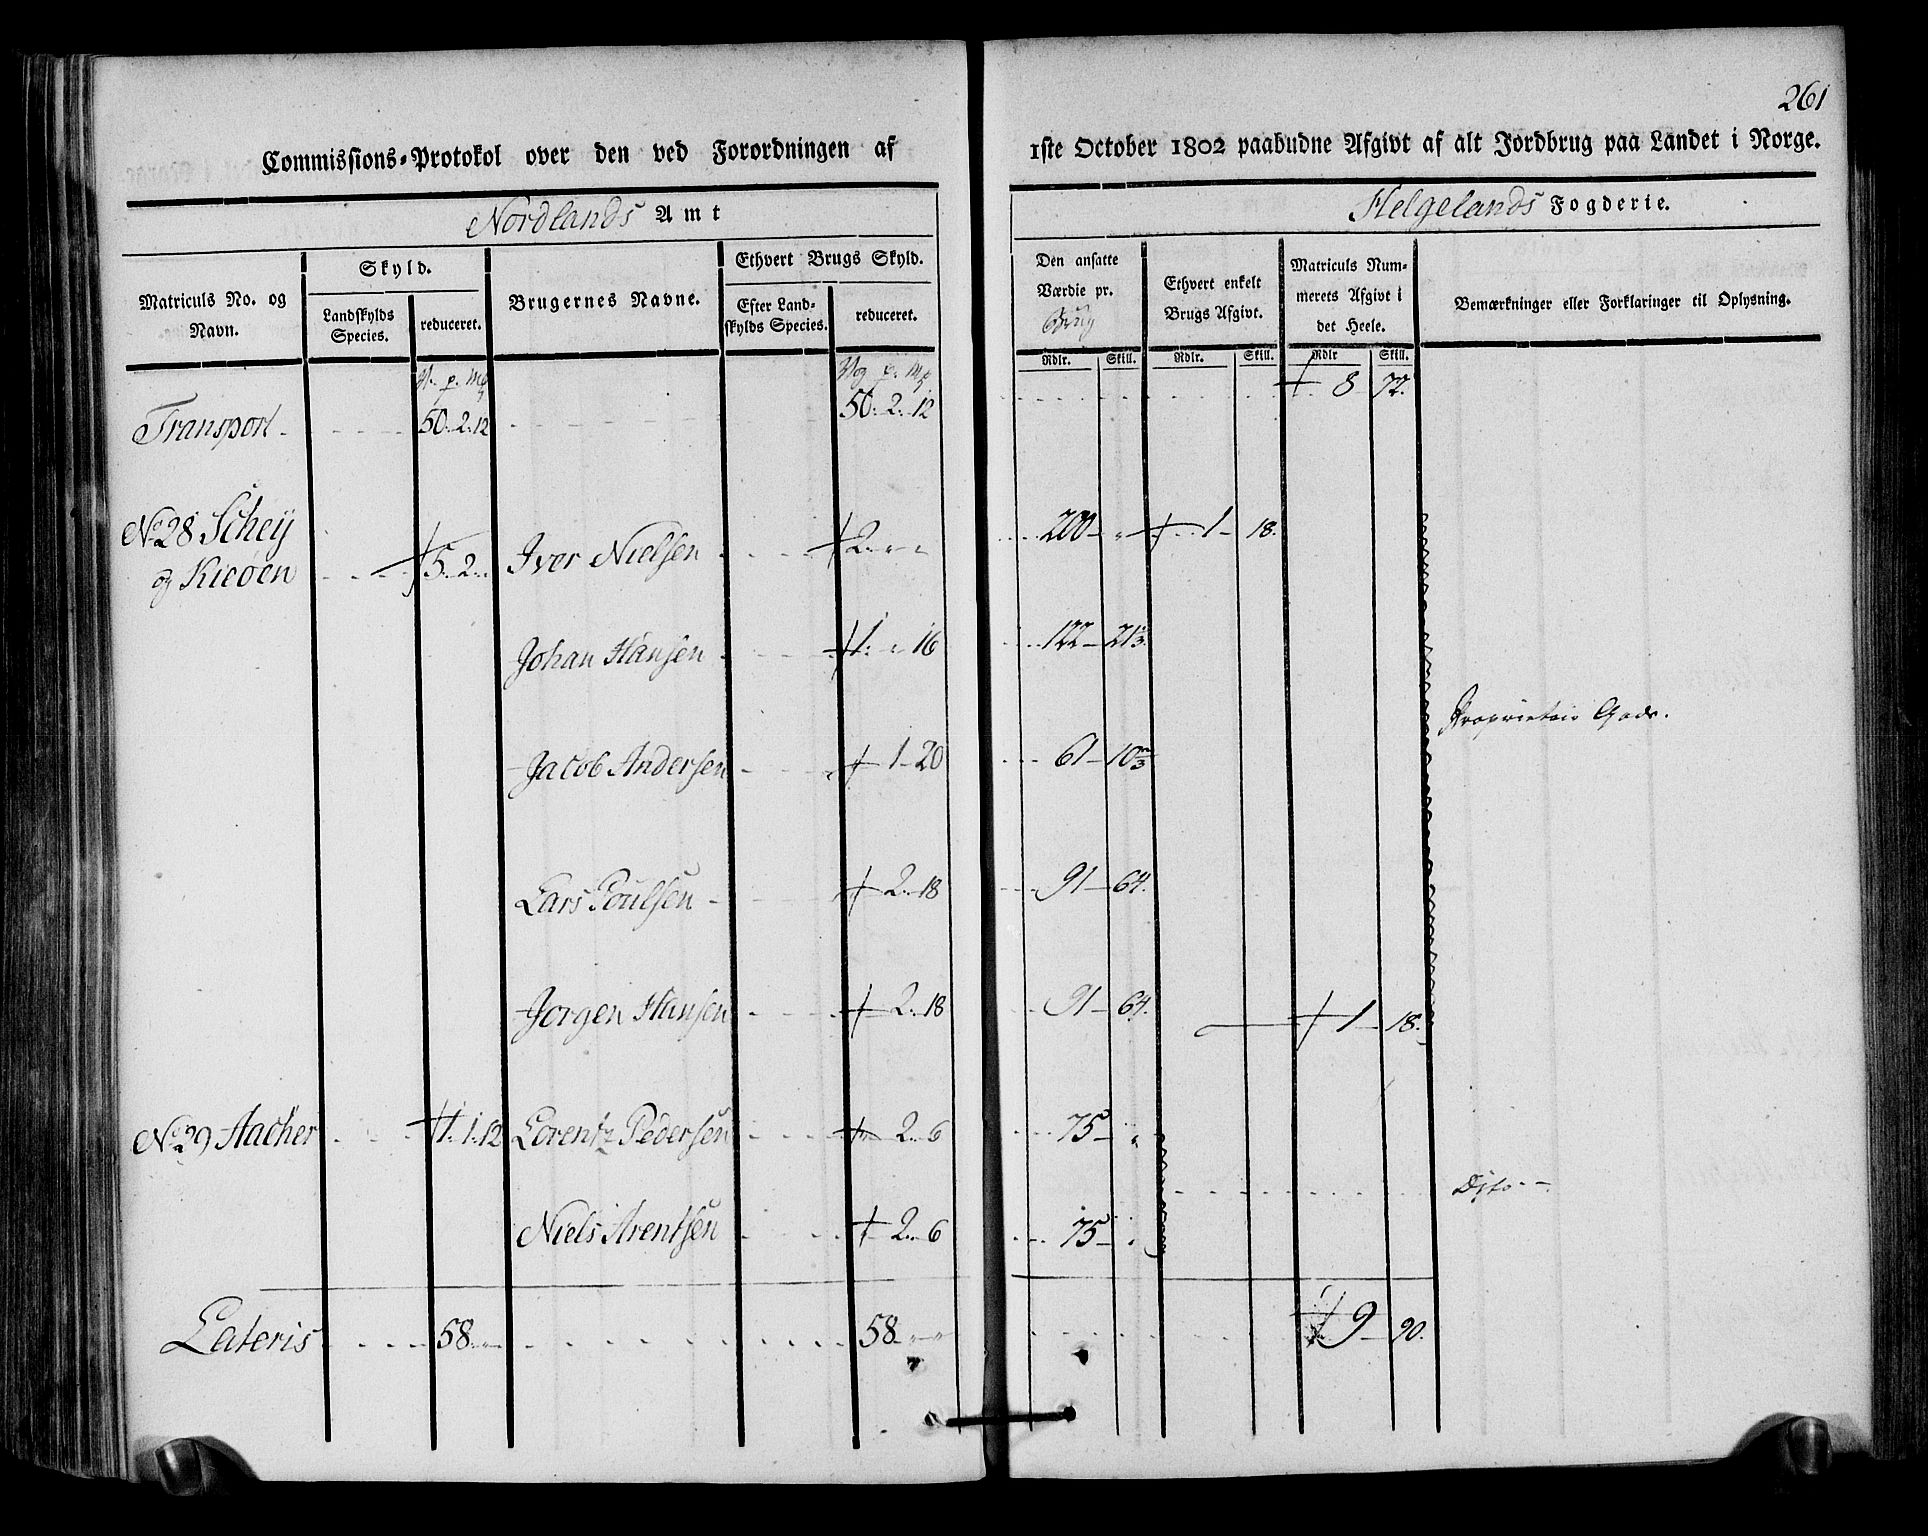 261
Commissions-Protokol over den ved Forordningen af 1ste October 1802 paabudne Afgivt af alt Jordbrug paa Landet i Norge.
Nordlands Amt Helgelands Fogderie.
Matriculs No. og Navn.
Skyld.
Landskylds Species.
reduceret.
Brugernes Navne.
Ethvert Brugs Skyld.
Efter Landskylds Species.
reduceret.
Den ansatte Værdie pr. Brug
Rdlr. Skill.
Ethvert enkelt Brugs Afgivt.
Rdlr. Skill.
Matriculs Nummerets Afgivt i det Heele.
Rdlr Skill.
Bemærkninger eller Forklaringer til Oplysning.
V. p. Mg Vog p. Mg
Transport 50. 2. 12 50. 2. 12 8 72.
No 28 Schey
og Kieøen 5. 2. Iver Nielsen 2. 200 1 18.
Johan Hansen 1. 16 122 21 1/3.
Proprietair Gods.
Jacob Andersen 1 20 61 10 2/3
Lars Poulsen 2. 18 91 64.
Jorgen Hansen 2. 18 91 64. 1 18.
No 29 Aacher 1. 1. 12 Lorentz Pedersen 2. 6 75
Dito
Niels Arentsen 2. 6 75
Lateris 58 58 9 90.